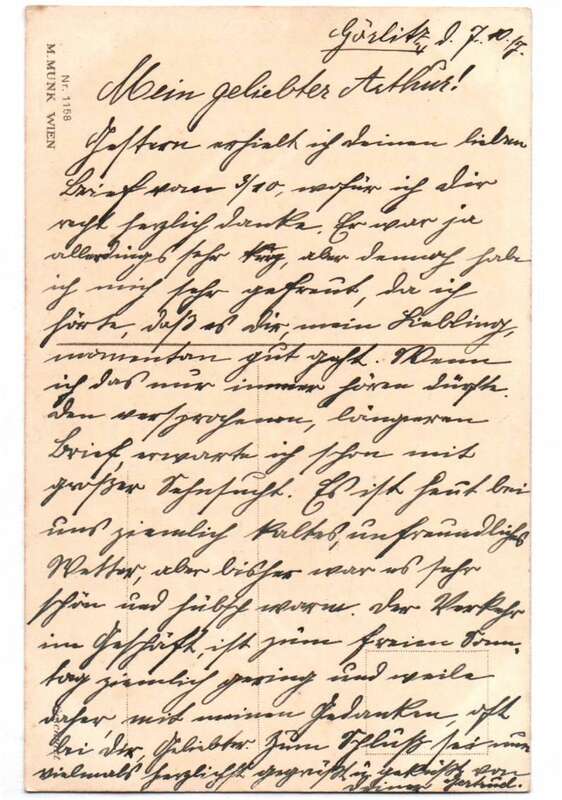 Görlitz, d. 7.10.17.
Mein geliebter Arthur!
Gestern erhielt ich deinen lieben
Brief vom 3/10, wofür ich dir
recht herzlich danke. Er war ja
allerdings sehr krz, aber dennoch habe
ich mich sehr gefreut, da ich
hörte, daß es dir, mein Liebling,
momentan gut geht. Wenn
ich das nur immer hören dürfte.
Den versprochenen, längeren
Brief, erwarte ich schon mit
großer Sehnsucht. Es ist heut bei
uns ziemlich kaltes, unfreundliches
Wetter, aber bisher war es sehr
schön und hübsch warm. Der Verkehr
im Geschäft, ist zum freien Sonn-
tag ziemlich gering und weile
daher, mit meinen Gedanken, oft
bei dir, Geliebter. Zum Schluß sei nun
vielmals herzlichst gegrüßt u. geküßt von
deiner Gertrud.
Nr. 1158
M. MUNK WIEN